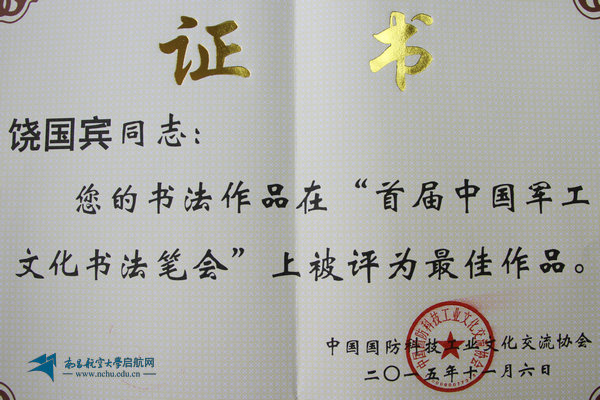 证书
饶国宾同志：
您的书法作品在“首届中国军工
文化书法笔会”上被评为最佳作品。
中国国防科技工业文化交流协会
二〇一五年十一月六日
中国国防科技工业文化交流协会
南昌航空大学启航网
www.nchu.edu.cn